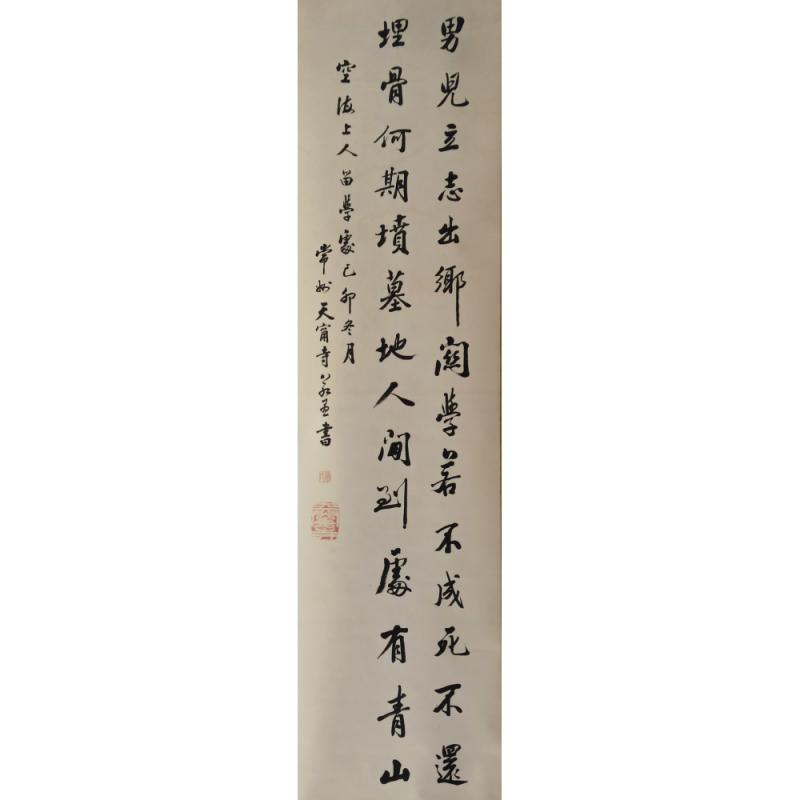 男兒立志出鄉關學若不成死不還
埋骨何期墳墓地人間到處有青山
空海上人留學處己卯冬月
常州天甯寺 書